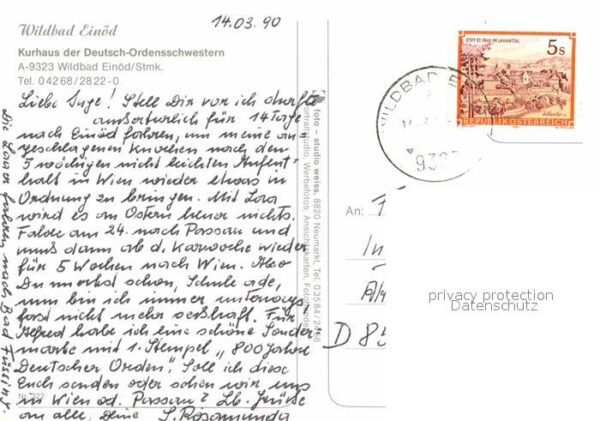 14.03.90
Wildbad Einöd
Kurhaus der Deutsch-Ordensschwestern
A-9323 Wildbad Einöd/Stmk.
Tel. 04268/2822-0
Liebe Inge! Stell Dir vor ich durfte
außertourlich für 14 Tage
nach Einöd fahren, um meine an-
geschlagenen Knochen nach den
5 wöchigen nicht leichten Aufent-
halt in Wien wieder etwas in
Ordnung zu bringen. Mit
wird es an Ostern heuer nichts.
Fahre am 24. nach Passau und
muß dann ab d. Karwoche wieder
für 5 Wochen nach Wien. Also
Du merkst schon, Schule ade,
nun bin ich immer unterwegs
fast nicht mehr seßhaft. Für
Alfred habe ich eine schöne Sonder-
marke mit 1. Stempel "800 Jahre
Deutscher Orden". Soll ich diese
Euch senden oder sehen wir uns
in Wien od. Passau? Lb. Grüße
an alle, Deine S. Rosamunda
nach Bad Füssing.
foto – studio weiss, 8820 Neumarkt, Tel. 03584/2446
Portraitstudio, Werbefotos, Ansichtskarten,
STIFT ST. PAUL IM LAVANTTAL
5s
REPUBLIK ÖSTERREICH
WILDBAD
932
An:
In
D 85
privacy protection
Datenschutz